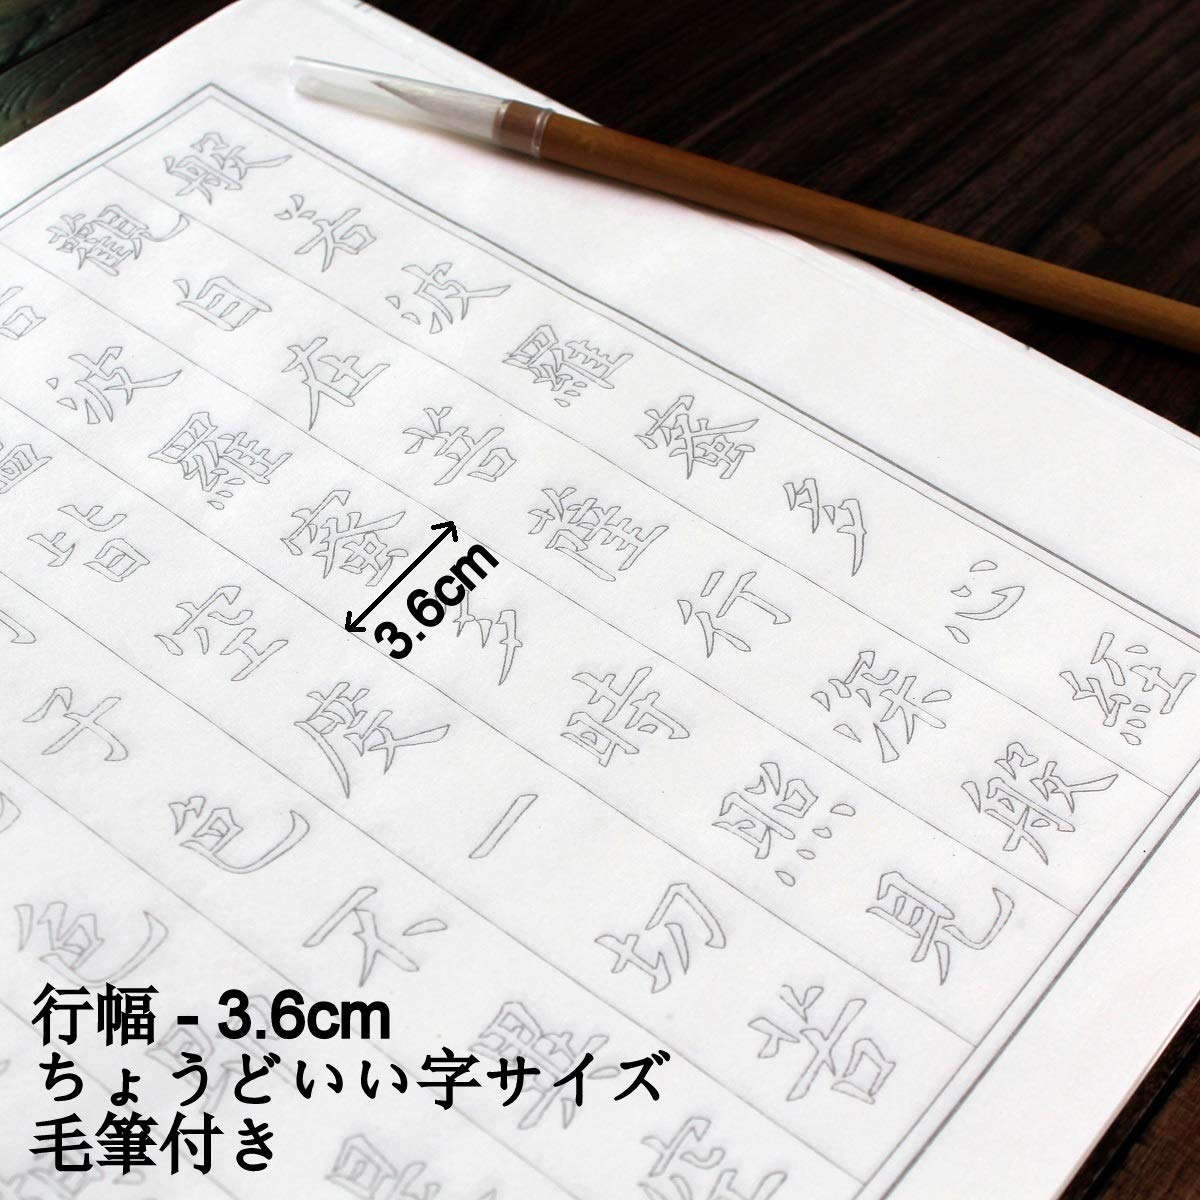 般若波羅蜜多心経
觀自在菩薩行深般
若波羅蜜多時照見
蘊皆空度一切苦
子色不異空
色
是
3.6cm
行幅 - 3.6cm
ちょうどいい字サイズ
毛筆付き